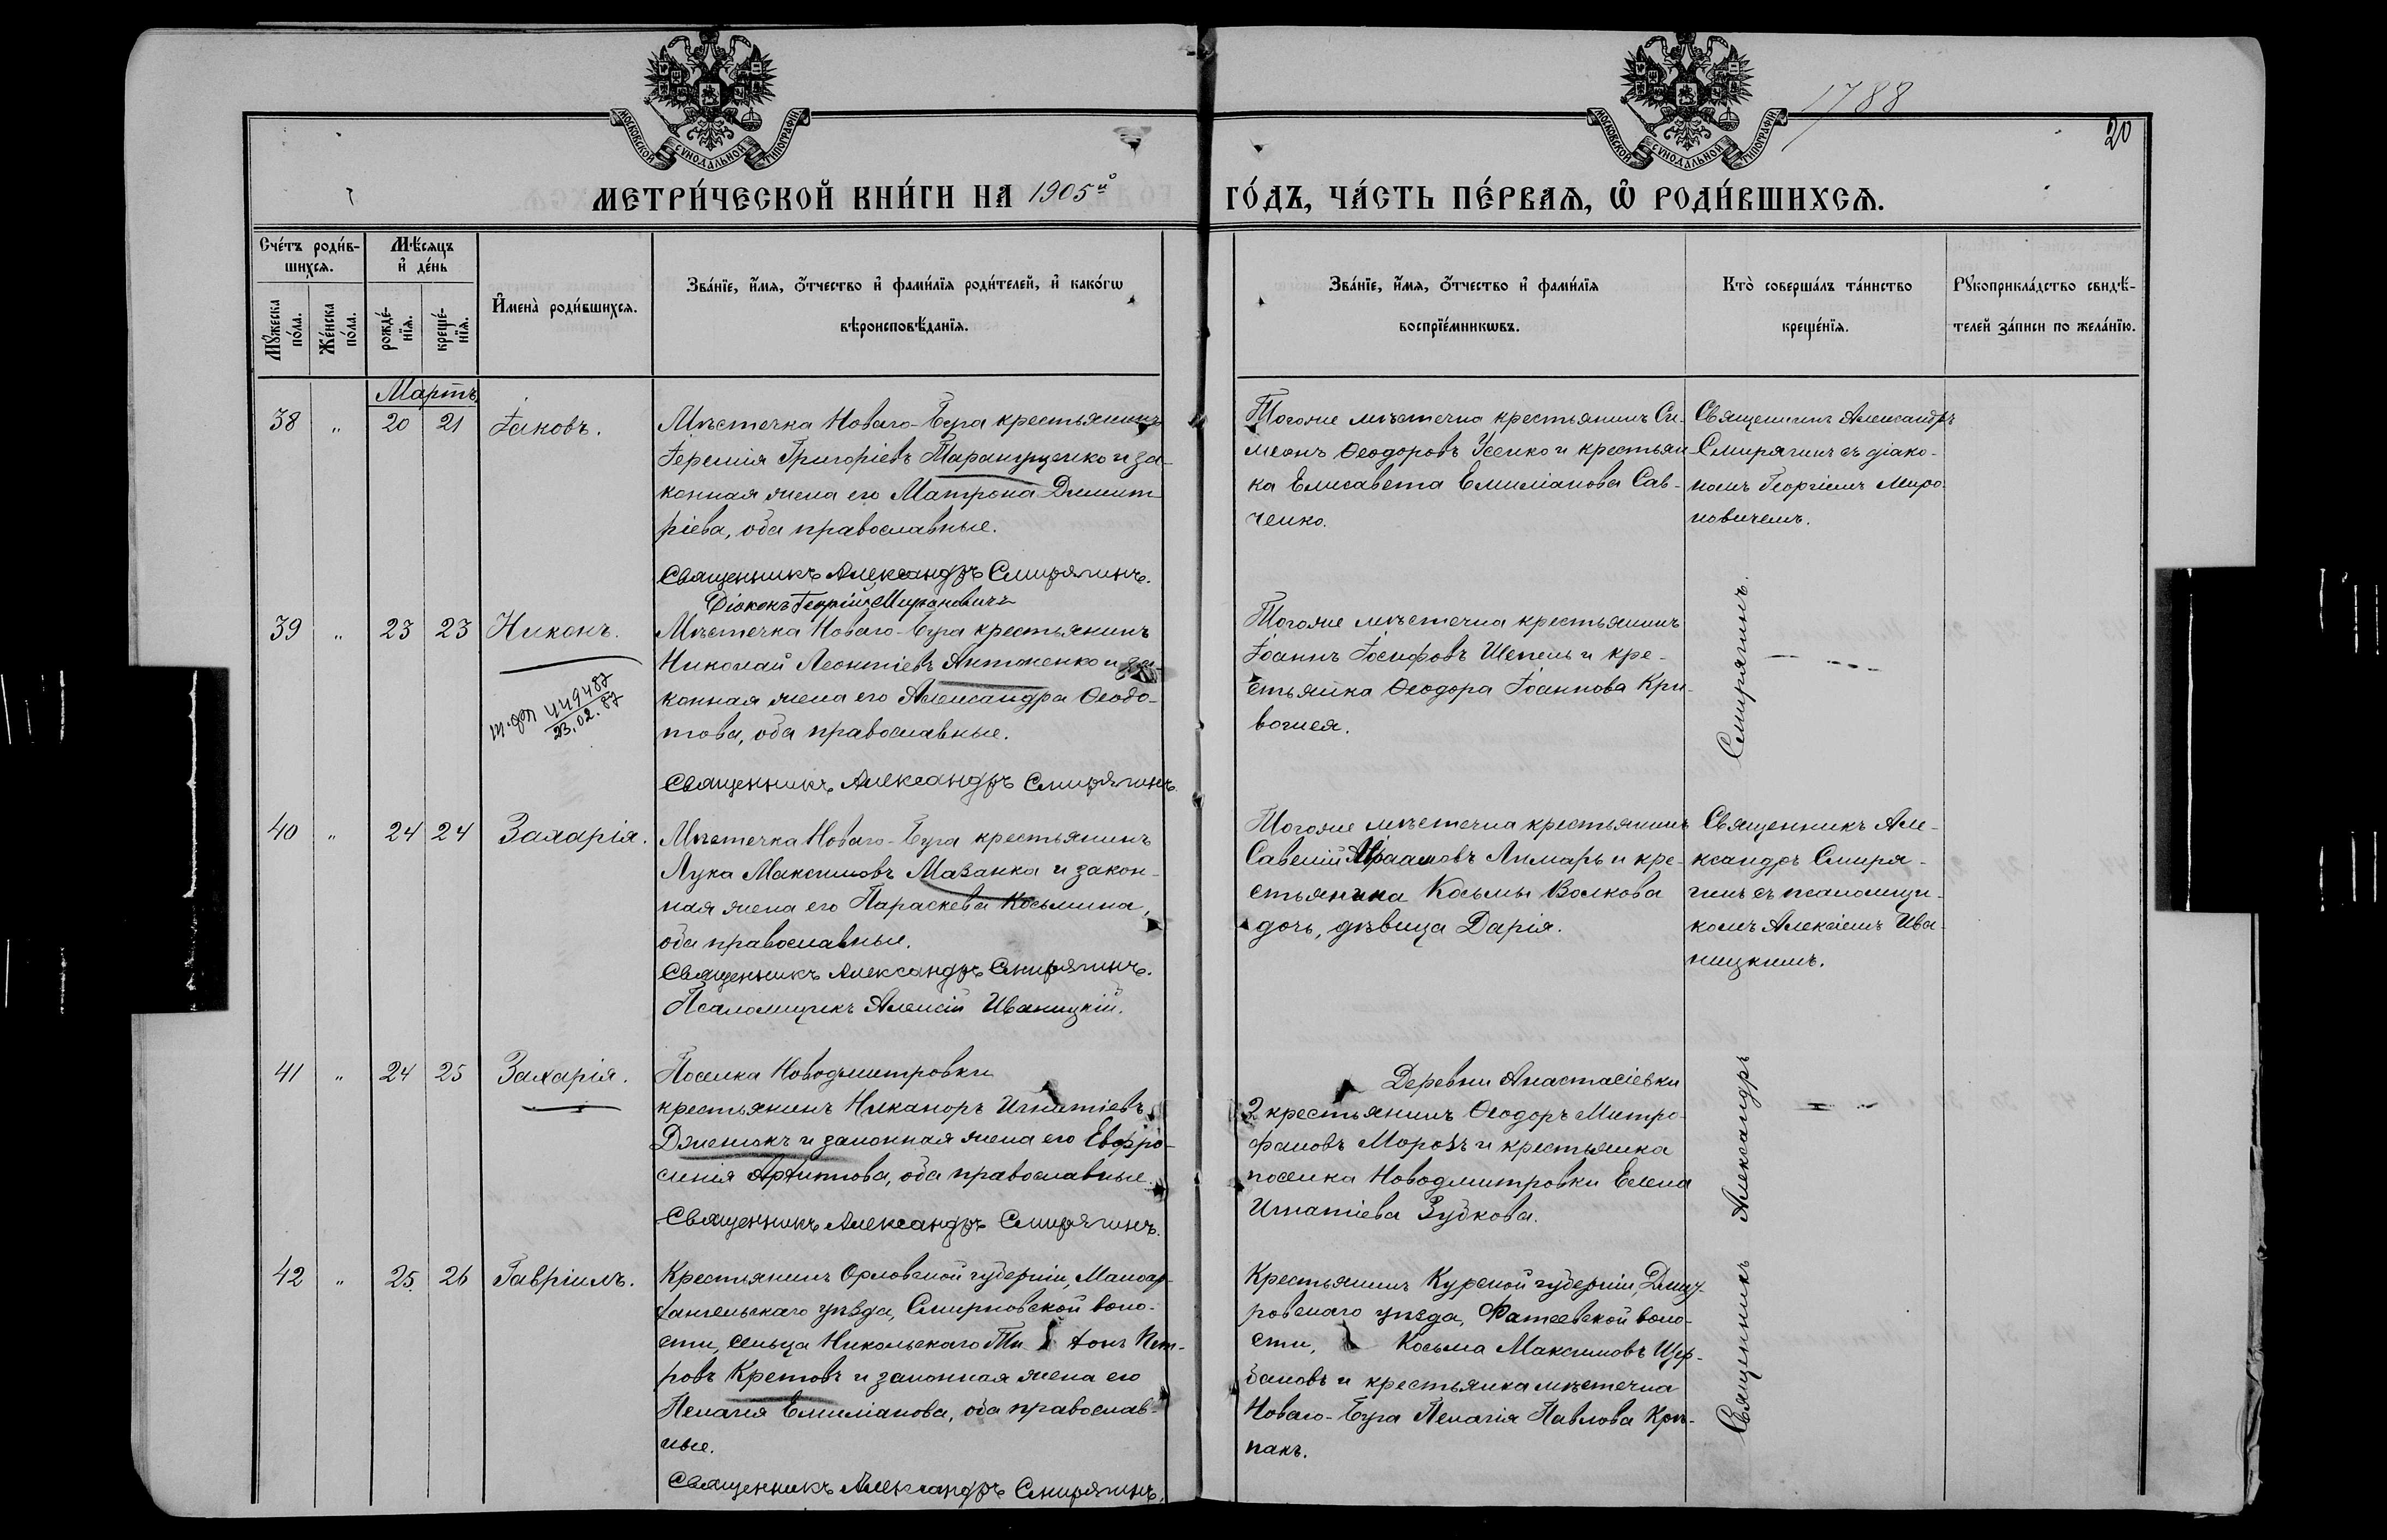 1788
20
МОСКОВСКОЙ СѴНОДАЛЬНОЙ ТИПОГРАФІИ
МОСКОВСКОЙ СѴНОДАЛЬНОЙ ТИПОГРАФІИ
МЕТРИ́ЧЕСКОЙ КНИ́ГИ НА 1905й
ГО́ДЪ, ЧА́СТЬ ПЕ́РВАѦ, Ѽ РОДИ́ВШИХСѦ.
Сче́тъ роди́в-
шихсѧ.
Мꙋ́жеска по́ла.
Же́нска по́ла.
Мѣ́сѧцъ
и҆ де́нь
рожде́-
нїѧ.
креще́-
нїѧ.
И҆мена̀ роди́вшихсѧ.
Зва́нїе, и҆́мѧ, ѻ҆́тчество и҆ фами́лїѧ роди́телей, и҆ како́гѡ
вѣроисповѣ́данїѧ.
Зва́нїе, и҆́мѧ, ѻ҆́тчество и҆ фами́лїѧ
воспрїе́мникѡвъ.
Кто̀ соверша́лъ та́инство
креще́нїѧ.
Рꙋкоприкла́дство свидѣ́-
телей за́писи по жела́нїю.
Мартъ
38 " 20 21 Іаковъ.
Мѣстечка Новаго-Буга крестьянинъ
Іеремія Григоріевъ Таранущенко и за-
конная жена его Матрона Димит-
ріева, оба православные.
Священникъ Александръ Смирягинъ.
Діаконъ Георгій Мироновичъ
Тогоже мѣстечка крестьянинъ Си-
меонъ Ѳеодоровъ Усенко и крестьян-
ка Елисавета Емиліанова Сав-
ченко.
Священникъ Александръ
Смирягинъ съ діако-
номъ Георгіемъ Миро-
новичемъ.
39 " 23 23 Никонъ.
449487
23.02.87
Мѣстечка Новаго-Буга крестьянинъ
Николай Леонтіевъ Антоненко и за-
конная жена его Александра Ѳеодо-
това, оба православные.
Священникъ Александръ Смирягинъ.
Тогоже мѣстечка крестьянинъ
Іоаннъ Іосифовъ Шепель и кре-
стьянка Ѳеодора Іоаннова Кри-
вошея.
40 " 24 24 Захарія.
Мѣстечка Новаго-Буга крестьянинъ
Лука Максимовъ Мазанка и закон-
ная жена его Параскева Косьмина,
оба православные.
Священникъ Александръ Смирягинъ.
Псаломщикъ Алексій Иваницкій.
Тогоже мѣстечка крестьянинъ
Савелій Авраамовъ Лимарь и кре-
стьянина Косьмы Волкова
дочь, дѣвица Дарія.
Священникъ Але-
ксандръ Смиря-
гинъ съ псаломщи-
комъ Алексіемъ Ива-
ницкимъ.
41 " 24 25 Захарія.
Поселка Новодмитровки
крестьянинъ Никаноръ Игнатіевъ
и законная жена его Евфро-
синія Архиппова, оба православные.
Священникъ Александръ Смирягинъ.
Деревни Анастасіевки
крестьянинъ Ѳеодоръ Митро-
фановъ Морозъ и крестьянка
поселка Новодмитровки Елена
Игнатіева Зубкова.
42 " 25 26 Гавріилъ.
Крестьянинъ Орловской губерніи, Малоар-
хангельскаго уѣзда, Смирновской воло-
сти, сельца Никольскаго Ти хонъ Пет-
ровъ Кретовъ и законная жена его
Пелагія Емиліанова, оба православ-
ные.
Священникъ Александръ Смирягинъ.
Крестьянинъ Курской губерніи, Дмит-
ровскаго уѣзда, Фатеевской воло-
сти, Косьма Максимовъ Щер-
баковъ и крестьянка мѣстечка
Новаго-Буга Пелагія Павлова Кры-
пакъ.
Священникъ Александръ Смирягинъ.